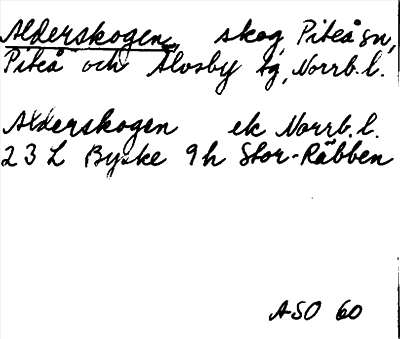 Alderskogen, skog, Piteå sn,
Piteå och Älvsby tg, Norrb. l.
Alderskogen ek Norrb. l.
23 L Byske 9h Stor-Räbben
ASO 60